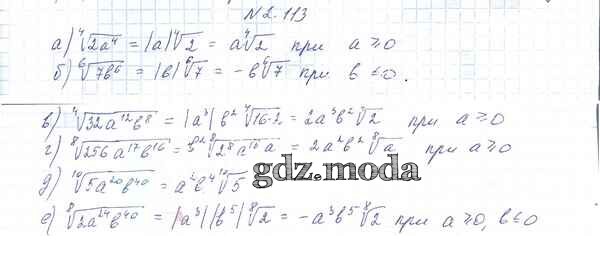 №2.113
а) ⁴√2a⁴ = |a|⁴√2 = a⁴√2 при a ≥ 0
б) ⁶√7b⁶ = |b|⁶√7 = -b⁶√7 при b ≤ 0.
в) ⁴√32a¹²b⁸ = |a³|b² ⁴√16·2 = 2a³b² ⁴√2 при a ≥ 0
г) ⁸√256a¹⁷b¹⁶ = ⁸√2⁸a¹⁶a = 2a²b² ⁸√a при a ≥ 0
д) ¹⁰√5a²⁰b⁴⁰ = a²b⁴ ¹⁰√5
gdz.moda
е) ⁸√2a²⁴b⁴⁰ = |a³||b⁵| ⁸√2 = -a³b⁵ ⁸√2 при a ≥ 0, b ≤ 0